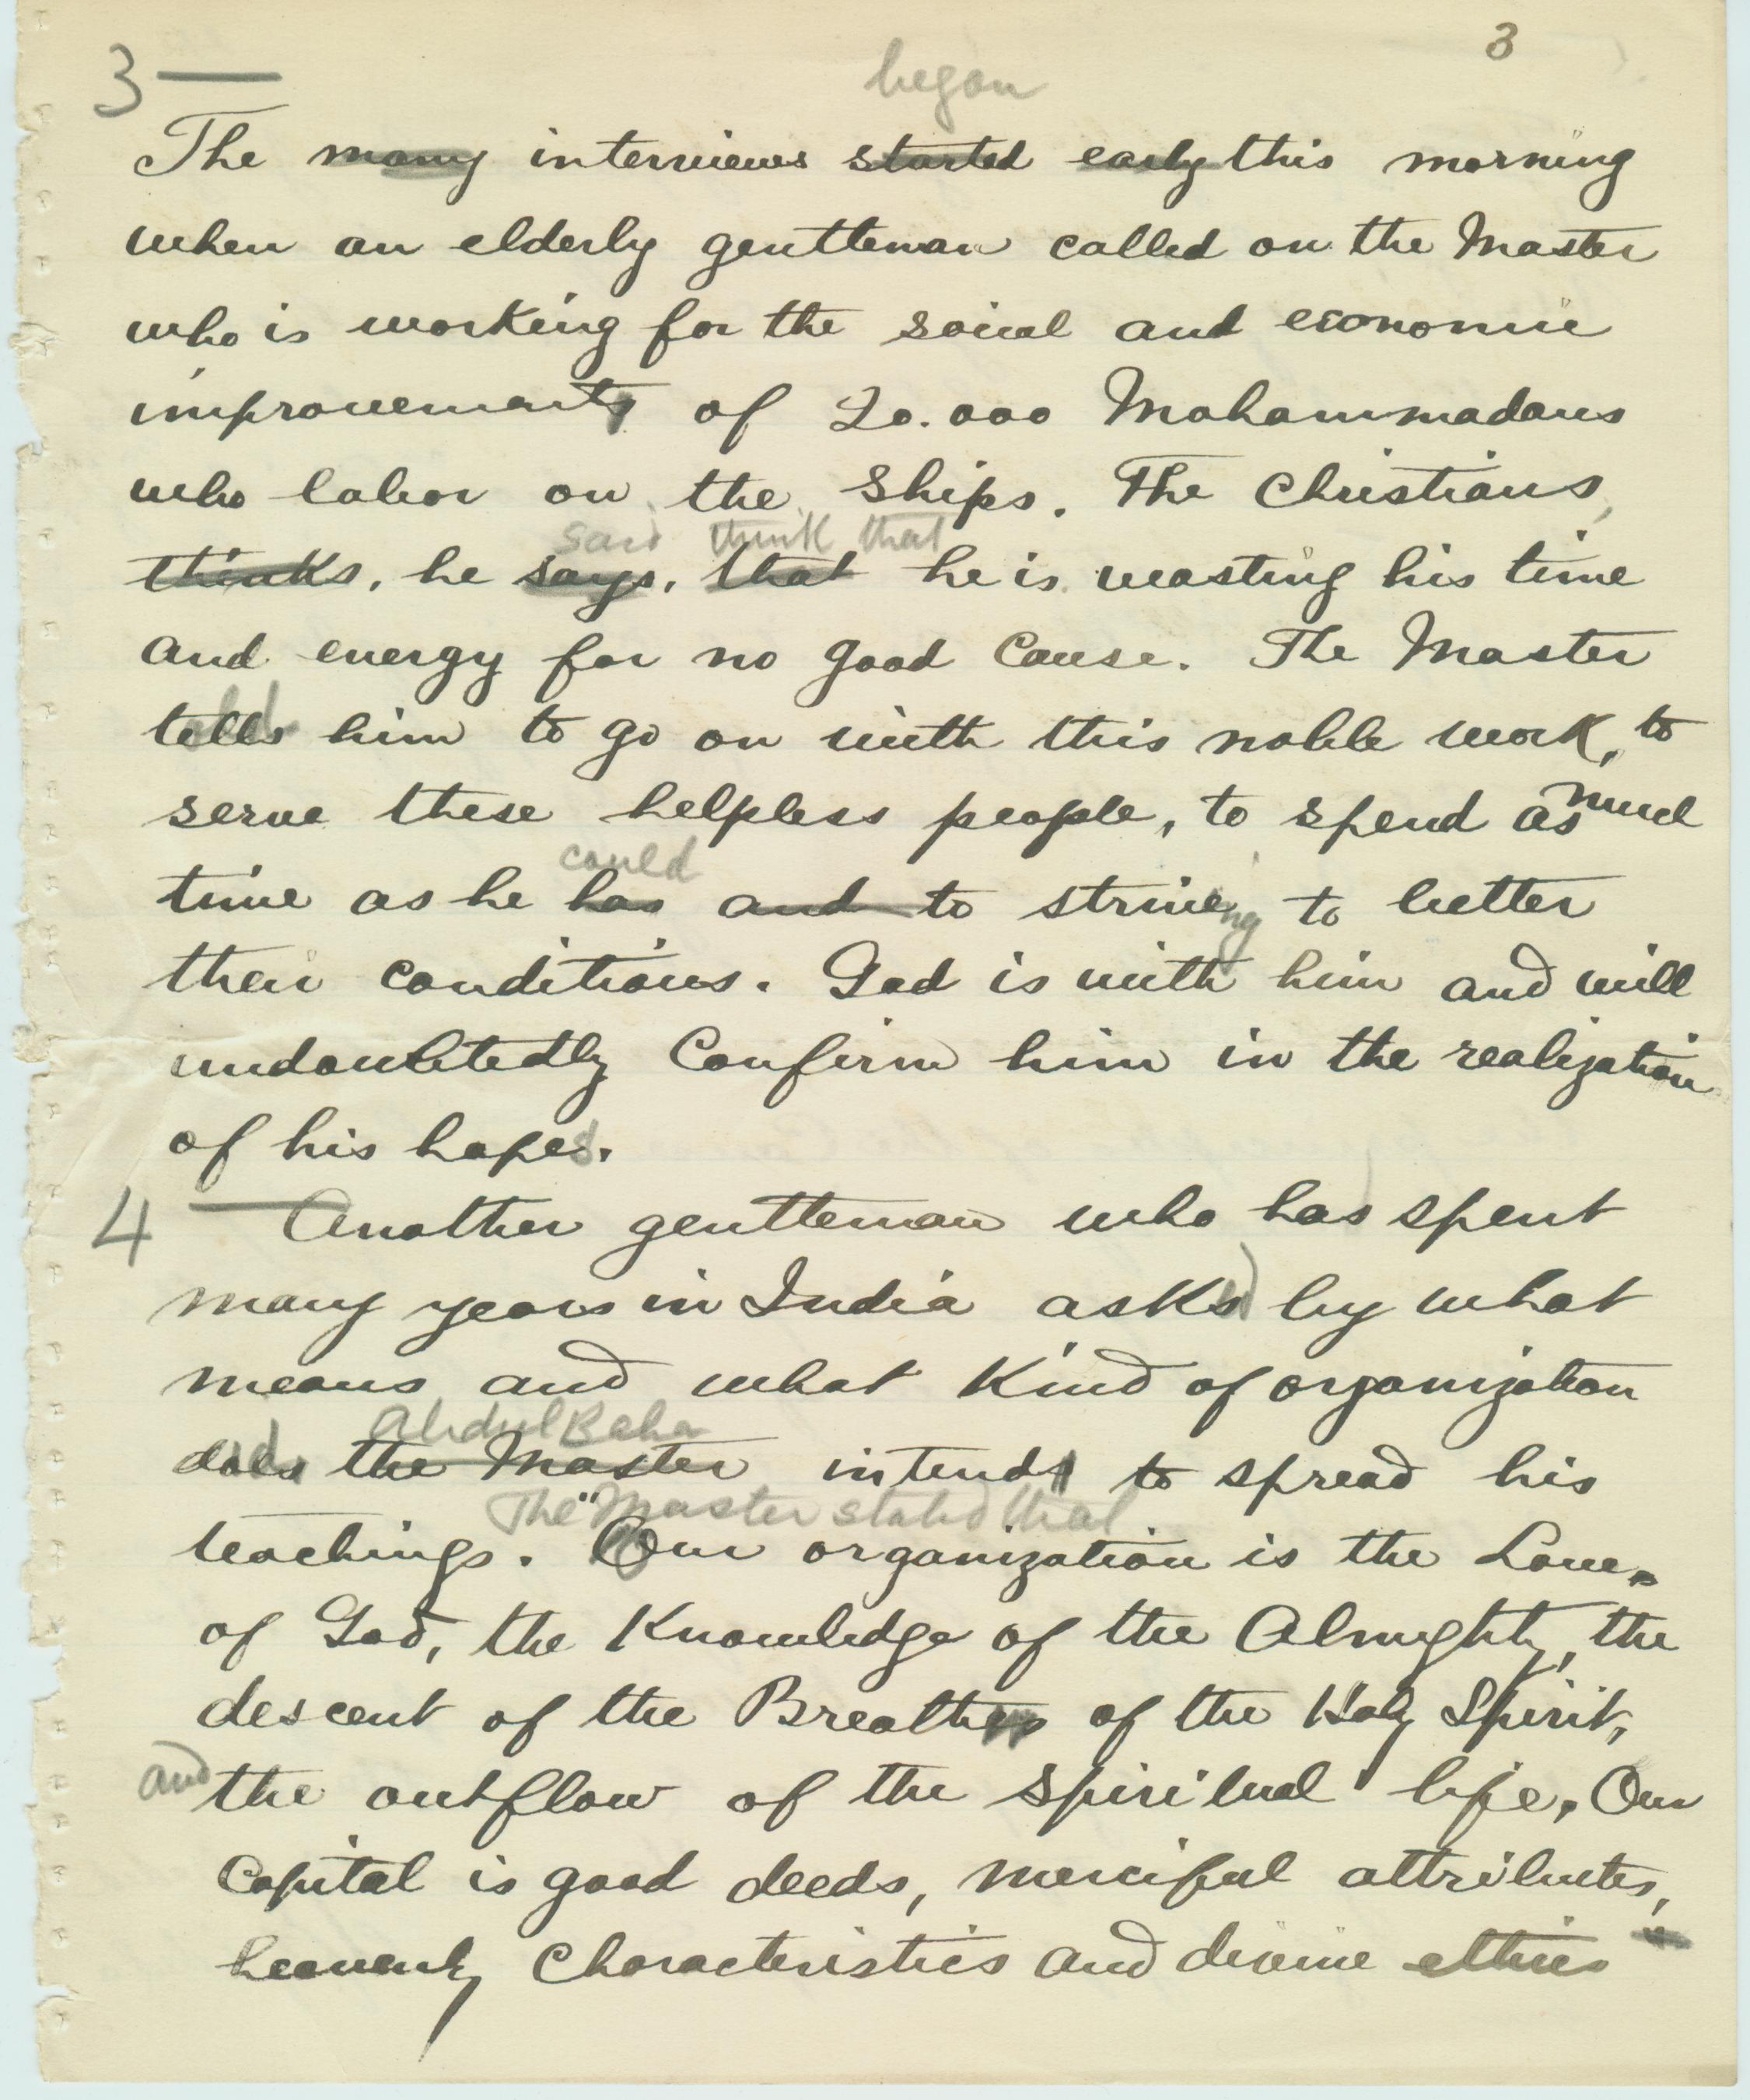 3
3 —
began
The many interviews started early this morning
when an elderly gentleman called on the Master
who is working for the social and economic
improvements of 20.000 Mohammadans
who labor on the ships. The Christians,
said think that
thinks, he says, that he is wasting his time
and energy for no good Cause. The Master
tells him to go on with this noble work, to
serve these helpless people, to spend as much
could
time as he has and to striveing to better
their conditions. God is with him and will
undoubtedly Confirm him in the realization
of his hopes.
4 — Another gentleman who has spent
many years in India asks by what
means and what kind of organization
Abdul Baha
does the Master intends to spread his
The "Master stated that
teachings. Our organization is the Love
of God, the Knowledge of the Almighty, the
descent of the Breathes of the Holy Spirit,
and the outflow of the spiritual life. Our
Capital is good deeds, merciful attributes,
heavenly Characteristics and divine ethics"